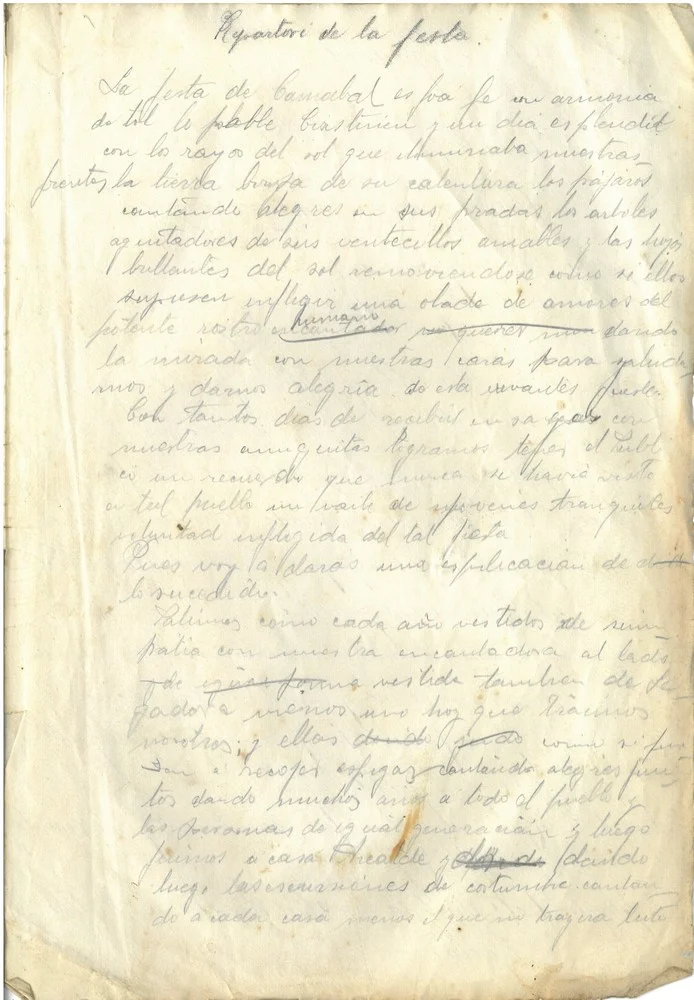 de la festa.
La festa de Carnabal es foa fe un armonia
de tot lo poble y un dia esplendit
con los rayos del sol que iluminaba nuestras
frentes la tierra bruja de su calentura los pájaros
cantando alegres en sus pradas los arboles
agitadores de sus ventecillos amables y las hojas
brillantes del sol removiendose como si ellos
supiesen inflegir una olada de amores del
potente rostro encantador humano dando
la mirada con nuestras caras para saluda
rnos y darnos alegria de esta fiesta.
Con tantos dias de recibir en sa con
nuestras amiguitas logramos tener el publi
co un recuerdo que nunca se havia visto
en tal pueblo un baile de jovenes tranquiles
voluntad inflegida del tal fiesta
Pues voy a daros una esplicacion de
lo sucedido.
Salimos como cada año vestidos de sim
patia con nuestra encantadora al lado
de igual forma vestida tambien de Se
gadora menos uno hoz que traemos
nosotros; y ellas como si fue
ran a recojer espigas cantando alegres jun
tos dando muchos años a todo el pueblo y
las personas de igual generación y luego
fuimos a casa Alcalde y dando
luego las escursiones de costumbre cantan
do a cada casa menos el que no trajera luto